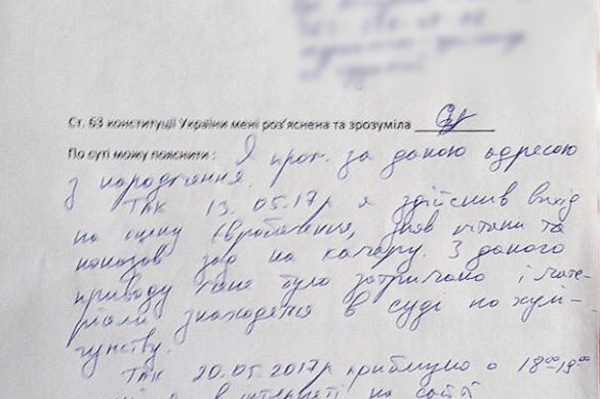 Ст. 63 конституції України мені роз'яснена та зрозуміла
По суті можу пояснити: Я прож. за даною адресою
з народження.
Так 13.05.17р я здійснив вихід
на сцену Євробачення, зняв штани та
показав зад на камеру. З даного
приводу мене було затримано і мате-
ріали знаходяться в суді по хулі-
ганству.
Так 20.05.2017р приблизно о 18⁰⁰-19⁰⁰
в інтернеті на сайті